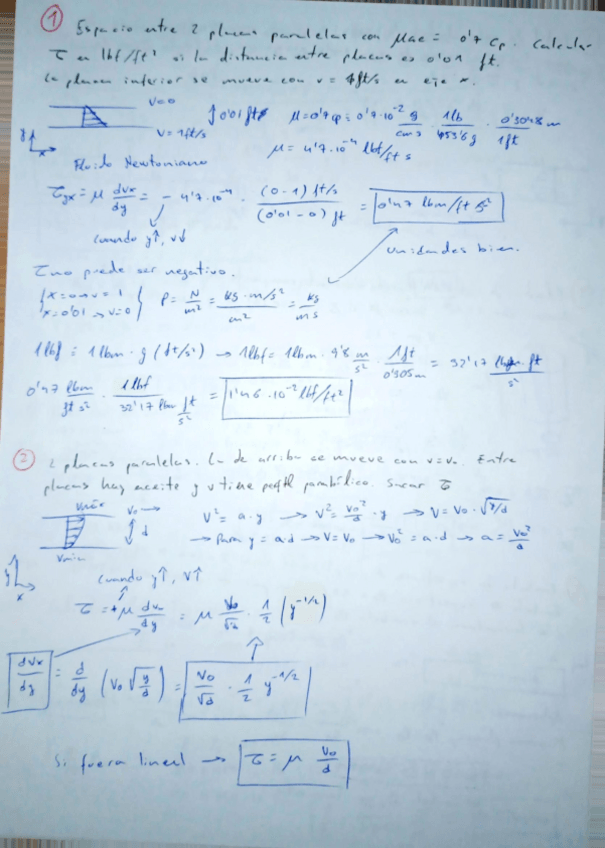 1 Espacio entre 2 placas paralelas con μac = 0'7 Cp. Calcular
τ en lbf/ft² si la distancia entre placas es 0'01 ft.
La placa inferior se mueve con v = 1ft/s en eje x.
v=0
0'01 ft
v = 1ft/s
y
x
μ=0'7cp = 0'7·10⁻² g/cm s · 1lb/453'6 g · 0'3048 m/1ft
μ = 4'7·10⁻⁴ lbf/ft s
Fluido Newtoniano
τyx = μ dvx/dy = - 4'7·10⁻⁴ · (0-1) ft/s / (0'01-0) ft = 0'47 lbm/ft s²
cuando y↑, v↓
unidades bien.
τ no puede ser negativo.
{x=0 → v=1
x=0'01 → v=0}
P = N/m² = kg·m/s² / m² = kg/m s
1lbf = 1lbm · g (ft/s²) → 1lbf = 1lbm · 9'8 m/s² · 1ft/0'305m = 32'17 lbm·ft/s²
0'47 lbm/ft s² · 1lbf / 32'17 lbm ft/s² = 1'46·10⁻² lbf/ft²
2 2 placas paralelas. La de arriba se mueve con v=v₀. Entre
placas hay aceite y v tiene perfil parabólico. Sacar τ
Vmáx
V₀ →
d
Vmin
V² = a·y → V² = V₀²/d · y → V = V₀ · √y/d
→ Para y = a·d → V=V₀ → V₀² = a·d → a = V₀²/d
y
x
cuando y↑, v↑
τ = +μ dvx/dy = μ V₀/√d · 1/2 (y^-1/2)
dvx/dy = d/dy (V₀ √y/d) = V₀/√d · 1/2 y^-1/2
Si fuera lineal → τ = μ V₀/d